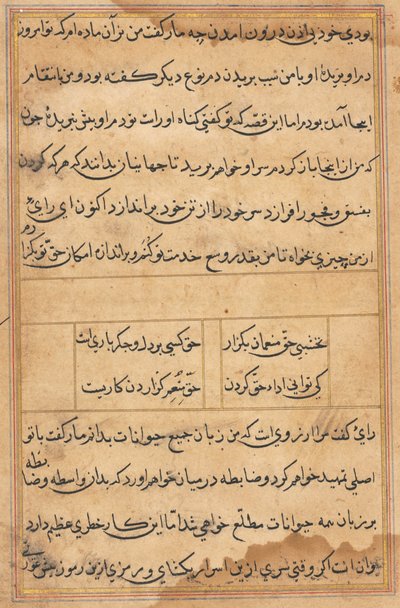 بودی خود بی اذن درون آمدن چه مار گفت من نر آن ماده ام که تو امروز
دم او بریدهٔ او با من شب بریدن دم نوع دیگر گفته بود و من بانتقام
اینجا آمده بودم اما این قصه که تو گفتی گناه اورا ست تو دم او پیش نبریدهٔ چون
که من از اینجا باز کردم سر او خواهم برید تا جهانیان بدانند که هر که کردن
بفسق و فجور افرازد سر خود را از تن خود براندازد اکنون ای رای
از من چیزی بخواه تا من بقدر وسع خدمت تو کنم و براندازه امکان حق تو بگزارم
نخشبی حق منعمان بگزار
حق کسی بر دل و جگر باری است
کی توانی اداء حق کردن
حق منعم گزاردن کاریست
رای گفت مرا آرزوی است که من زبان جمیع حیوانات بدانم مار گفت با تو
اصلی تمهید خواهم کرد و ضابطه در میان خواهم آورد که بدان واسطه و ضابطه
بر زبان همه حیوانات مطلع خواهی شد اما این کار خطری عظیم دارد
وان است اگر وقتی سری ازین اسرار بکشای و رمزی ازین رموز پیش عورتی